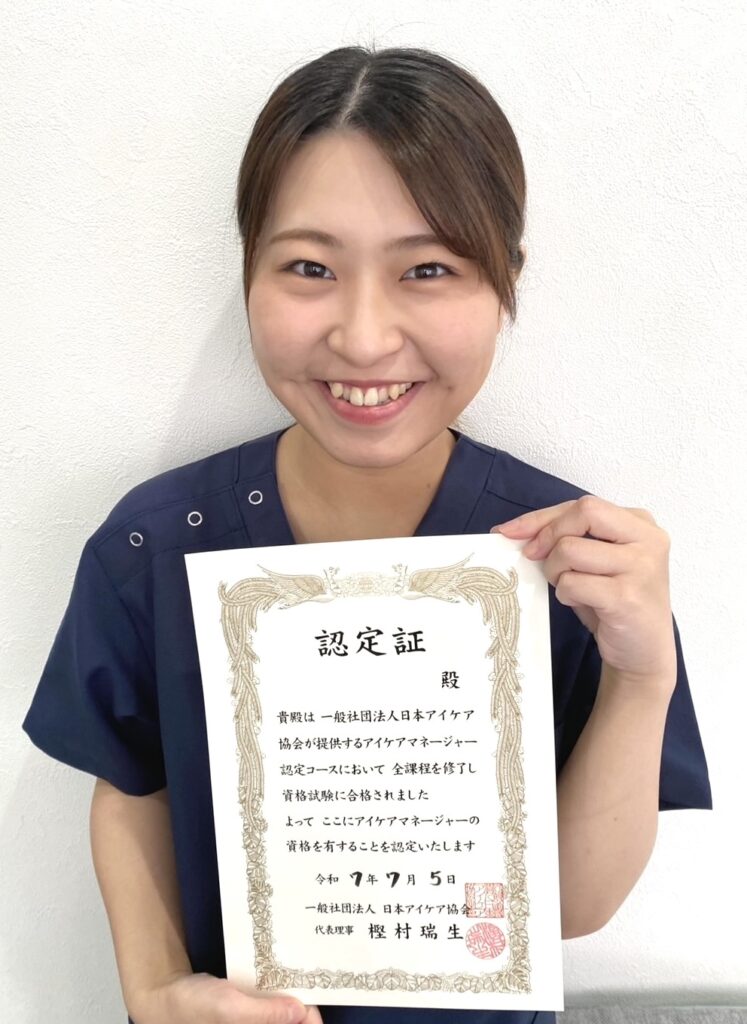 認定証
殿
貴殿は 一般社団法人日本アイケア
協会が提供するアイケアマネージャー
認定コースにおいて 全課程を修了し
資格試験に合格されました
よって ここにアイケアマネージャーの
資格を有することを認定いたします
令和 7年 7月 5日
一般社団法人 日本アイケア協会
代表理事 樫村瑞生